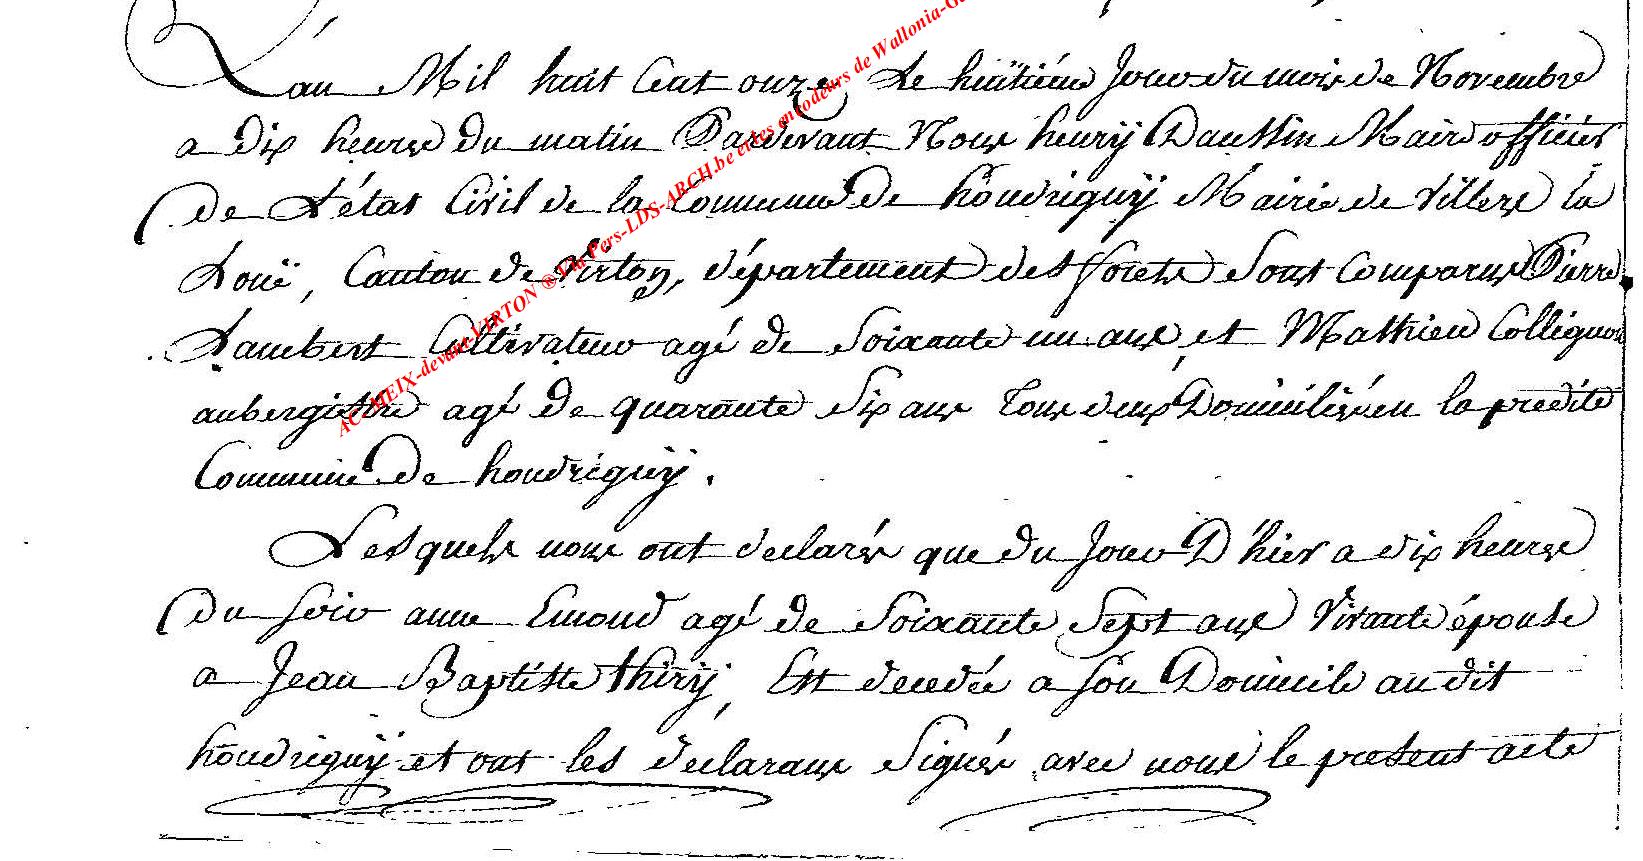 L'an Mil huit Cent onze Le huitiéme Jour du mois de Novembre
a dix heures du matin Pardevant Nous henrÿ Daussin Maire officier
De L'état Civil de la Commune De houdrignÿ Mairie de Villers la
Louë, Canton de Virton, département des forets Sont Comparus Pierre
Lambert Cultivateur agé de Soixante un ans, et Mathieu Collignon
aubergiste agé de quarante Six ans Tous deux Domiciliés en la predite
Commune De houdrignÿ.
Lesquels nous ont declarés que du Jour D'hier a dix heures
Du soir anne Emond agé de Soixante Sept ans Vivante épouse
a Jean Baptiste thirÿ, Est decedée a son Domicile au dit
houdrignÿ et ont les déclarans Signés avec nous le present acte
AC MEIX-devant-VIRTON ® Via Pers-LDS-ARCH.be et les encodeurs de Wallonia-Ge